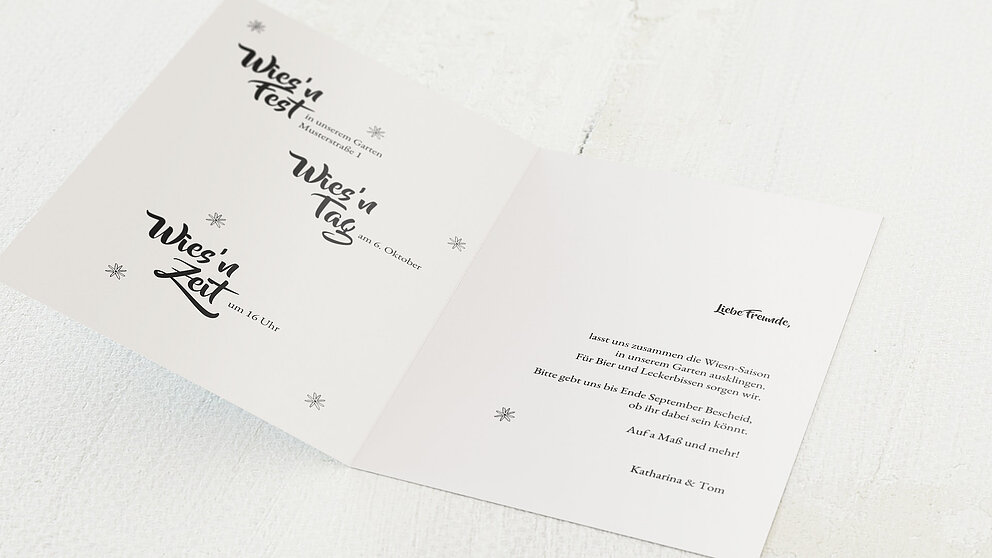 Wies'n
Fest
in unserem Garten
Musterstraße 1
Wies'n
Tag
am 6. Oktober
Wies'n
Zeit
um 16 Uhr
Liebe Freunde,
lasst uns zusammen die Wiesn-Saison
in unserem Garten ausklingen.
Für Bier und Leckerbissen sorgen wir.
Bitte gebt uns bis Ende September Bescheid,
ob ihr dabei sein könnt.
Auf a Maß und mehr!
Katharina & Tom